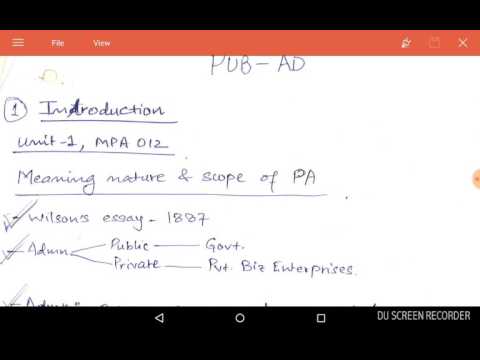 File View
PUB-AD
① Introduction
Unit-1, MPA 012
Meaning nature & scope of PA
- Wilson's essay - 1887
- Admn
Public - Govt.
Private - Pvt. Biz Enterprises.
DU SCREEN RECORDER